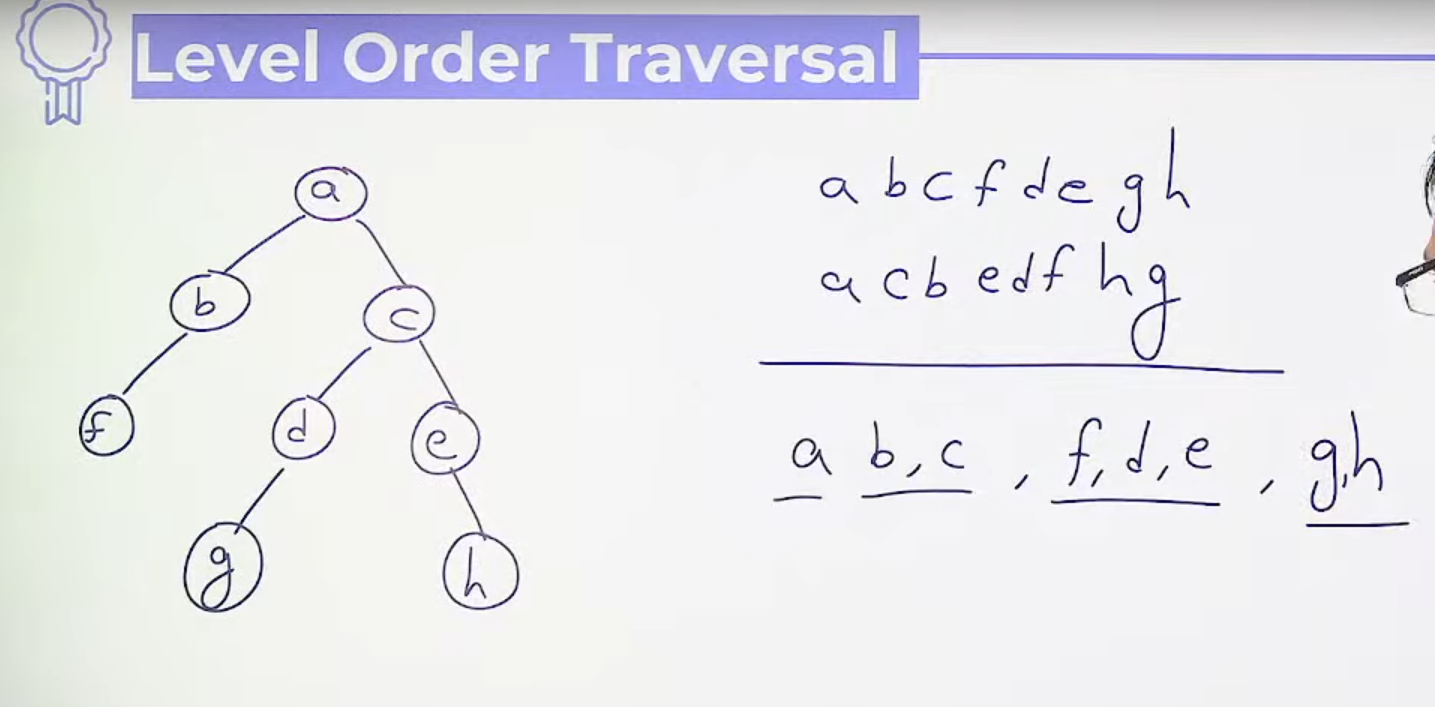 Level Order Traversal
a
b
c
f
d
e
g
h
a b c f d e g h
a c b e d f h g
a b, c , f, d, e , g, h